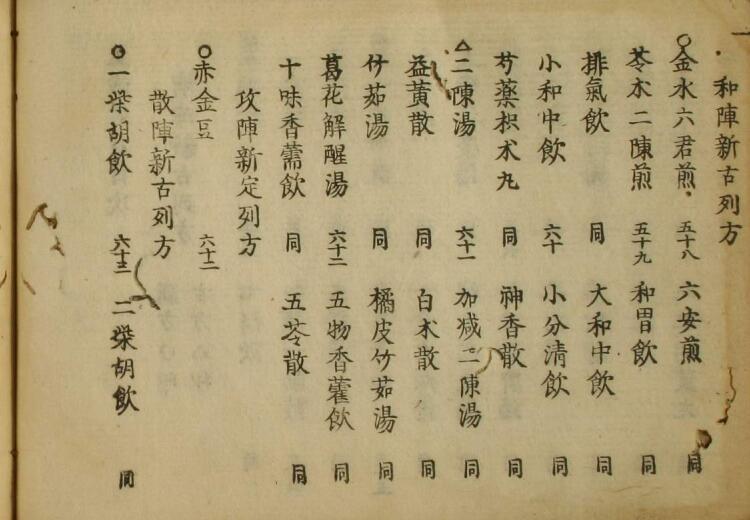 和陣新古列方
金水六君煎 五十八 六安煎 同
苓朮二陳煎 五十九 和胃飲 同
排氣飲 同 大和中飲 同
小和中飲 六十 小分清飲 同
芍藥枳朮丸 同 神香散 同
二陳湯 六十一 加减二陳湯 同
益黃散 同 白朮散 同
竹茹湯 同 橘皮竹茹湯 同
葛花解醒湯 六十二 五物香薷飲 同
十味香薷飲 同 五苓散 同
攻陣新定列方
赤金豆 六十二
散陣新古列方
一柴胡飲 六十三 二柴胡飲 同